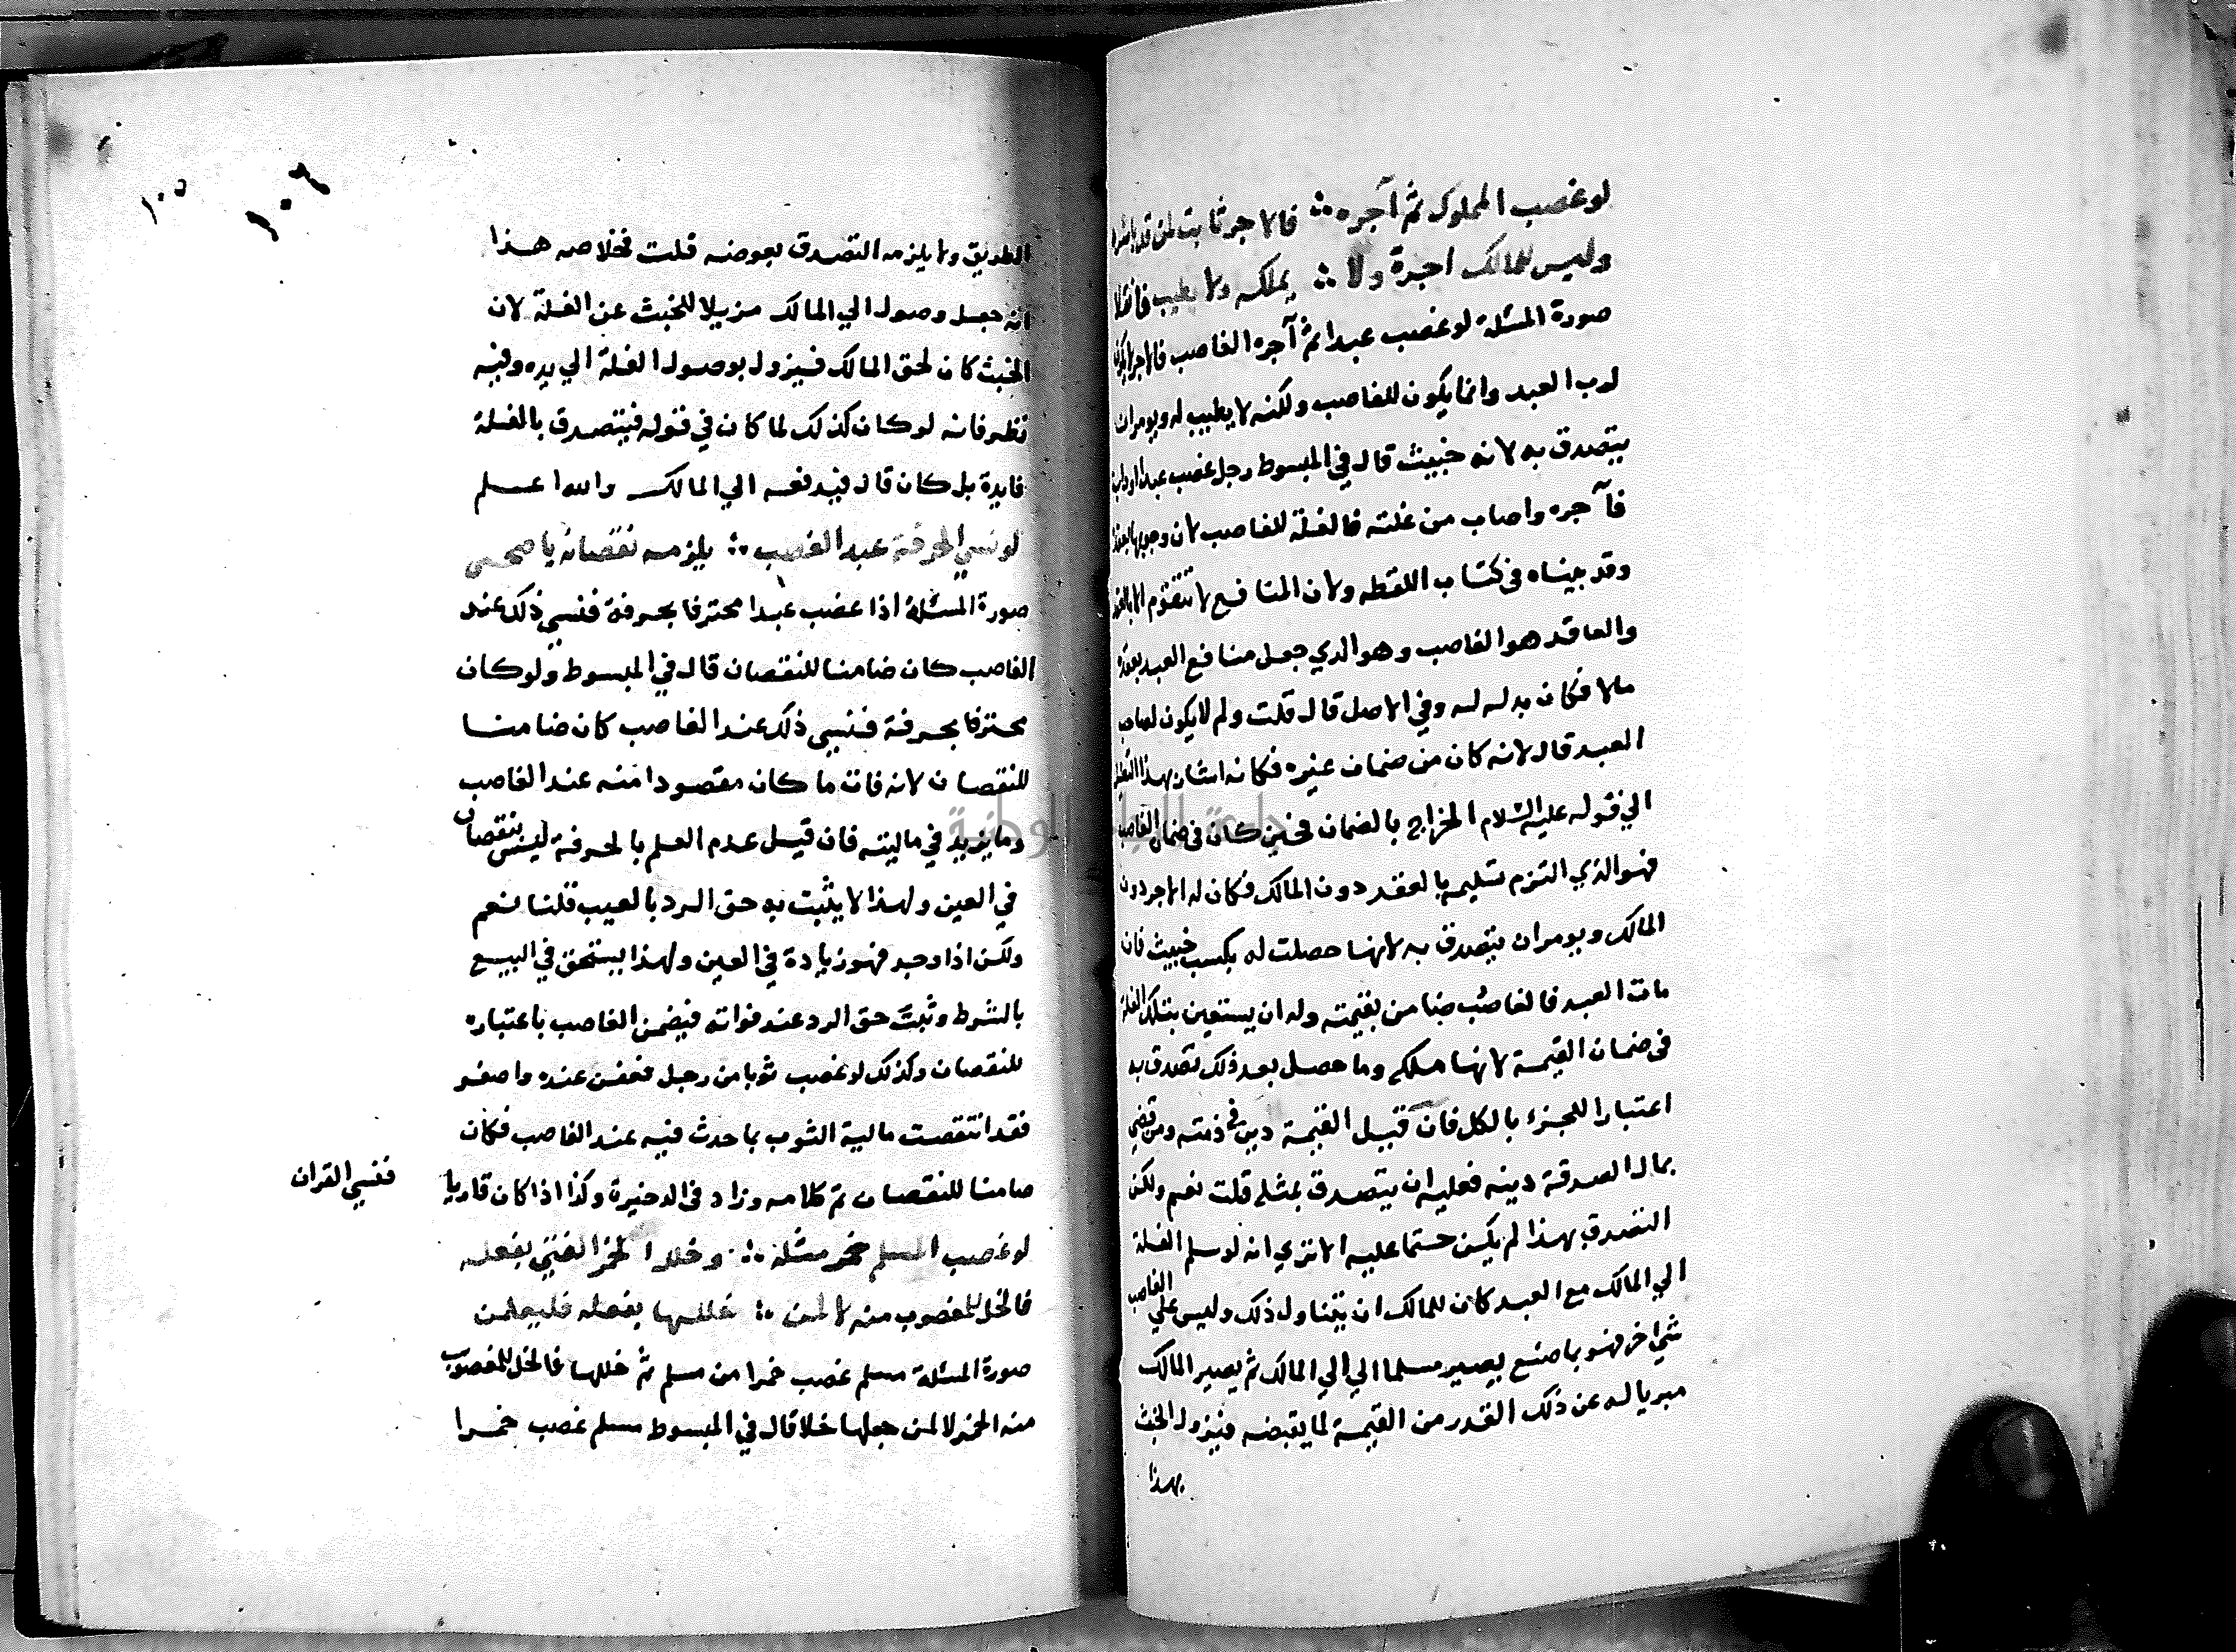 لو غصب المملوك ثم آجره ∴ فالاجر ثابت لمن قد باشره
وليس للمالك اجرة ولا ∴ يملكه ولا يطيب فانقلا
صورة المسئلة لو غصب عبدا ثم آجره الغاصب فالاجر لا يكون
لرب العبد وانما يكون للغاصب ولكنه لا يطيب له ويومر ان
يتصدق به لانه خبيث قال في المبسوط رجل غصب عبدا او دابة
فآجره واصاب من غلته فالغلة للغاصب لان وجوبها بعقده
وقد بيناه في كتاب اللقطه ولان المنافع لا تتقوم الا بالعقد
والعاقد هو الغاصب وهو الدي جعل منافع العبد بعقده
مالا فكان بدله له وفي الاصل قال قلت ولم لا يكون لصاحب
العبد قال لانه كان من ضمان غيره فكانه اشار بهذا التعليل
الي قوله عليه السلام الخراج بالضمان فحين كان في ضمان الغاصب
فهو الذي التزم تسليمه بالعقد دون المالك فكان له الاجر دون
المالك ويومر ان يتصدق به لانها حصلت له بكسب خبيث فان
مات العبد فالغاصب ضامن بقيمته وله ان يستعين بتلك الغلة
في ضمان القيمة لانها ملكه وما حصل بعد ذلك تصدق به
اعتبارا للجزء بالكل فان قيل القيمة دين في ذمته ومن قضي
بمال الصدقة دينه فعليه ان يتصدق بمثله قلت نعم ولكن
التصدق بهذا لم يكن حتما عليه الا تري انه لو سلم الغلة
الي المالك مع العبد كان للمالك ان يتناول ذلك وليس علي الغاصب
شي اخر فهو بما صنع يصير مسلما الي الي المالك ثم يصير المالك
مبريا له عن ذلك القدر من القيمة لما يقبضه فيزول الخبث
بهذا
١٠٥ ١٠٦
الطريق ولا يلزمه التصدق بعوضه قلت فخلاصه هذا
انه جعل وصول الي المالك مزيلا للخبث عن الغلة لان
الخبث كان لحق المالك فيزول بوصول الغلة الي يده وفيه
نظر فانه لو كان كذلك لما كان في قوله فيتصدق بالغلة
فايدة بل كان قال فيدفعه الي المالك والله اعلم
لو نسي الحرفة عبد الغصب ∴ يلزمه نقصانه يا صحبي
صورة المسئلة اذا غصب عبدا محترفا بحرفة فنسي ذلك عند
الغاصب كان ضامنا للنقصان قال في المبسوط ولو كان
محترفا بحرفة فنسي ذلك عند الغاصب كان ضامنا
للنقصان لانه فات ما كان مقصودا منه عند الغاصب
وما يزيد في ماليته فان قيل عدم العلم بالحرفة ليس بنقصان
في العين ولهذا لا يثبت به حق الرد بالعيب قلنا نعم
ولكن اذا وجد فهو زيادة في العين ولهذا يستحق في البيع
بالشرط ويثبت حق الرد عند فواته فيضمن الغاصب باعتباره
للنقصان وكذلك لو غصب ثوبا من رجل فعفن عنده واصفر
فقد انتقصت مالية الثوب بما حدث فيه عند الغاصب فكان
ضامنا للنقصان تم كلامه وزاد في الدخيرة وكذا اذا كان قاريا
فنسي القران
لو غصب المسلم خمر مثله ∴ وخلل الخمر الفتي بفعله
فالخل للمغصوب منه لا لمن ∴ خللها بفعله فليعلمن
صورة المسئلة مسلم غصب خمرا من مسلم ثم خللها فالخل للمغصوب
منه الخمر لا لمن جعلها خلا قال في المبسوط مسلم غصب خمرا